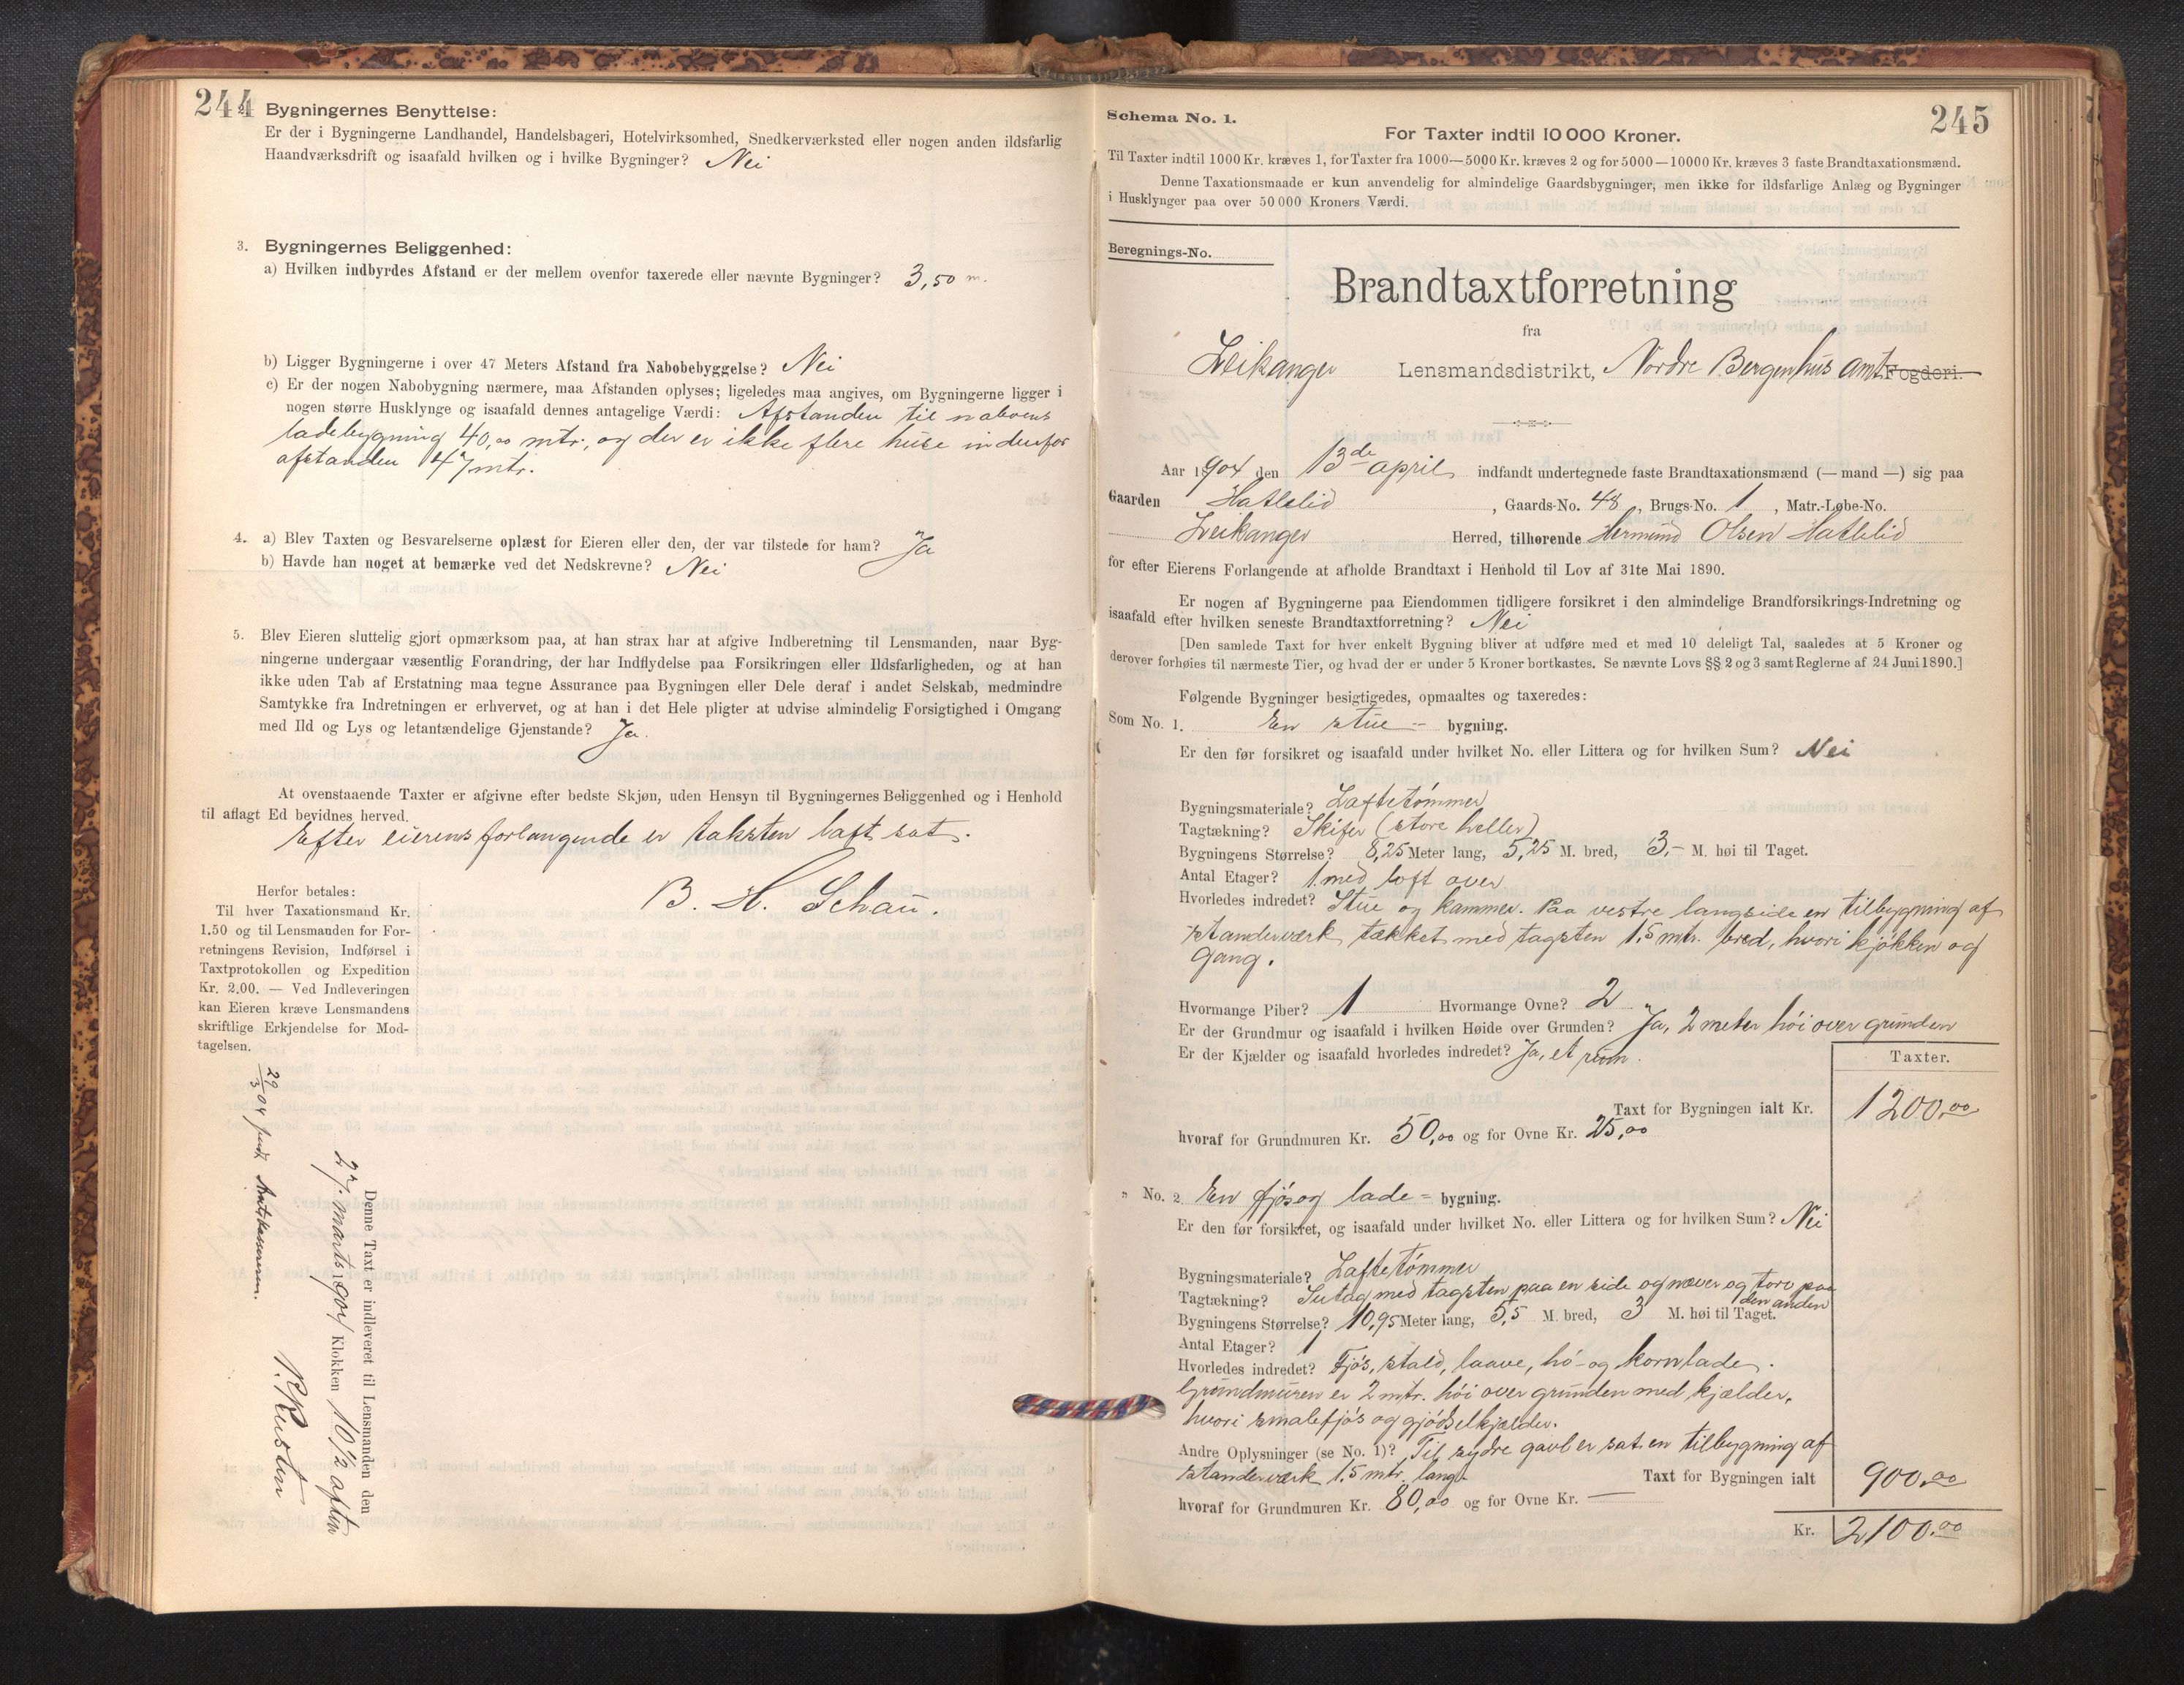 244
2. Bygningernes Benyttelse:
Er der i Bygningerne Landhandel, Handelsbageri, Hotelvirksomhed, Snedkerværksted eller nogen anden ildsfarlig
Haandværksdrift og isaafald hvilken og i hvilke Bygninger? Nei
3. Bygningernes Beliggenhed:
a) Hvilken indbyrdes Afstand er der mellem ovenfor taxerede eller nævnte Bygninger? 3,50 m.
b) Ligger Bygningerne i over 47 Meters Afstand fra Nabobebyggelse? Nei
c) Er der nogen Nabobygning nærmere, maa Afstanden oplyses; ligeledes maa angives, om Bygningerne ligger i
nogen større Husklynge og isaafald dennes antagelige Værdi: Afstanden til naboens
ladebygning 40,00 mtr., og der er ikke flere huse indenfor
afstanden 47 mtr.
4. a) Blev Taxten og Besvarelserne oplæst for Eieren eller den, der var tilstede for ham? Ja
b) Havde han noget at bemærke ved det Nedskrevne? Nei
5. Blev Eieren sluttelig gjort opmærksom paa, at han strax har at afgive Indberetning til Lensmanden, naar Byg-
ningerne undergaar væsentlig Forandring, der har Indflydelse paa Forsikringen eller Ildsfarligheden, og at han
ikke uden Tab af Erstatning maa tegne Assurance paa Bygningen eller Dele deraf i andet Selskab, medmindre
Samtykke fra Indretningen er erhvervet, og at han i det Hele pligter at udvise almindelig Forsigtighed i Omgang
med Ild og Lys og letantændelige Gjenstande? Ja.
At ovenstaaende Taxter er afgivne efter bedste Skjøn, uden Hensyn til Bygningernes Beliggenhed og i Henhold
til aflagt Ed bevidnes herved.
Efter eierens forlangende er taksten lavt sat.
B. H. Schau.
Herfor betales:
Til hver Taxationsmand Kr.
1.50 og til Lensmanden for For-
retningens Revision, Indførsel i
Taxtprotokollen og Expedition
Kr. 2.00. — Ved Indleveringen
kan Eieren kræve Lensmandens
skriftlige Erkjendelse for Mod-
tagelsen.
Denne Taxt er indleveret til Lensmanden den
27. marts 1904 Klokken 10 1/2 aften
29/3 04 sendt Amtskassereren.
245
Schema No. 1.
For Taxter indtil 10 000 Kroner.
Til Taxter indtil 1000 Kr. kræves 1, for Taxter fra 1000—5000 Kr. kræves 2 og for 5000—10000 Kr. kræves 3 faste Brandtaxationsmænd.
Denne Taxationsmaade er kun anvendelig for almindelige Gaardsbygninger, men ikke for ildsfarlige Anlæg og Bygninger
i Husklynger paa over 50 000 Kroners Værdi.
Beregnings-No.
Brandtaxtforretning
fra
Leikanger Lensmandsdistrikt, Nordre Bergenhus amt Fogderi.
Aar 1904 den 13de april indfandt undertegnede faste Brandtaxationsmænd (— mand —) sig paa
Gaarden Hatlelid, Gaards-No. 48, Brugs-No. 1, Matr.-Løbe-No.
Leikanger Herred, tilhørende Hermund Olsen Hatlelid
for efter Eierens Forlangende at afholde Brandtaxt i Henhold til Lov af 31te Mai 1890.
Er nogen af Bygningerne paa Eiendommen tidligere forsikret i den almindelige Brandforsikrings-Indretning og
isaafald efter hvilken seneste Brandtaxtforretning? Nei
[Den samlede Taxt for hver enkelt Bygning bliver at udføre med et med 10 deleligt Tal, saaledes at 5 Kroner og
derover forhøies til nærmeste Tier, og hvad der er under 5 Kroner bortkastes. Se nævnte Lovs §§ 2 og 3 samt Reglerne af 24 Juni 1890.]
Følgende Bygninger besigtigedes, opmaaltes og taxeredes:
Som No. 1. En stue- bygning.
Er den før forsikret og isaafald under hvilket No. eller Littera og for hvilken Sum? Nei
Bygningsmateriale? Laftetømmer
Tagtækning? Skifer (store heller)
Bygningens Størrelse? 8,25 Meter lang, 5,25 M. bred, 3,- M. høi til Taget.
Antal Etager? 1 med loft over
Hvorledes indredet? Stue og kammer. Paa vestre langside en tilbygning af
standerværk tækket med tagsten 1,5 mtr. bred, hvori kjøkken og
gang.
Hvormange Piber? 1 Hvormange Ovne? 2
Er der Grundmur og isaafald i hvilken Høide over Grunden? Ja, 2 meter høi over grunden
Er der Kjælder og isaafald hvorledes indredet? Ja, et rum.
Taxter.
Taxt for Bygningen ialt Kr. 1200,00
hvoraf for Grundmuren Kr. 50,00 og for Ovne Kr. 25,00
" No. 2 En fjøs og lade- bygning.
Er den før forsikret, og isaafald under hvilket No. eller Littera og for hvilken Sum? Nei
Bygningsmateriale? Laftetømmer
Tagtækning? Sutag med tagsten paa en side og næver og torv paa
den anden
Bygningens Størrelse? 10,95 Meter lang, 5,5 M. bred, 3 M. høi til Taget.
Antal Etager? 1
Hvorledes indredet? Fjøs, stald, laave, hø- og kornlade.
Grundmuren er 2 mtr. høi over grunden med kjælder,
hvori smalefjøs og gjødselkjælder.
Andre Oplysninger (se No. 1)? Til sydre gavl er sat en tilbygning af
standerværk 1,5 mtr. lang. Taxt for Bygningen ialt 900,00
hvoraf for Grundmuren Kr. 80,00 og for Ovne Kr. —
Kr. 2100,00